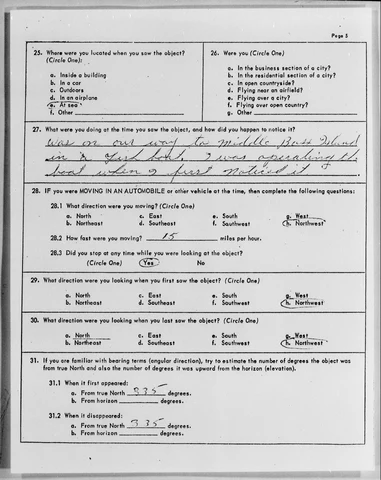 Page 5
25. Where were you located when you saw the object?
(Circle One):
a. Inside a building
b. In a car
c. Outdoors
d. In an airplane
e. At sea
f. Other
26. Were you (Circle One)
a. In the business section of a city?
b. In the residential section of a city?
c. In open countryside?
d. Flying near an airfield?
e. Flying over a city?
f. Flying over open country?
g. Other
27. What were you doing at the time you saw the object, and how did you happen to notice it?
Was on our way to Middle Bass Island
in a fish boat. I was operating the
boat when I first noticed it.
28. IF you were MOVING IN AN AUTOMOBILE or other vehicle at the time, then complete the following questions:
28.1 What direction were you moving? (Circle One)
a. North c. East e. South g. West
b. Northeast d. Southeast f. Southwest h. Northwest
28.2 How fast were you moving? 15 miles per hour.
28.3 Did you stop at any time while you were looking at the object?
(Circle One) Yes No
29. What direction were you looking when you first saw the object? (Circle One)
a. North c. East e. South g. West
b. Northeast d. Southeast f. Southwest h. Northwest
30. What direction were you looking when you last saw the object? (Circle One)
a. North c. East e. South g. West
b. Northeast d. Southeast f. Southwest h. Northwest
31. If you are familiar with bearing terms (angular direction), try to estimate the number of degrees the object was
from true North and also the number of degrees it was upward from the horizon (elevation).
31.1 When it first appeared:
a. From true North 335 degrees.
b. From horizon degrees.
31.2 When it disappeared:
a. From true North 335 degrees.
b. From horizon degrees.